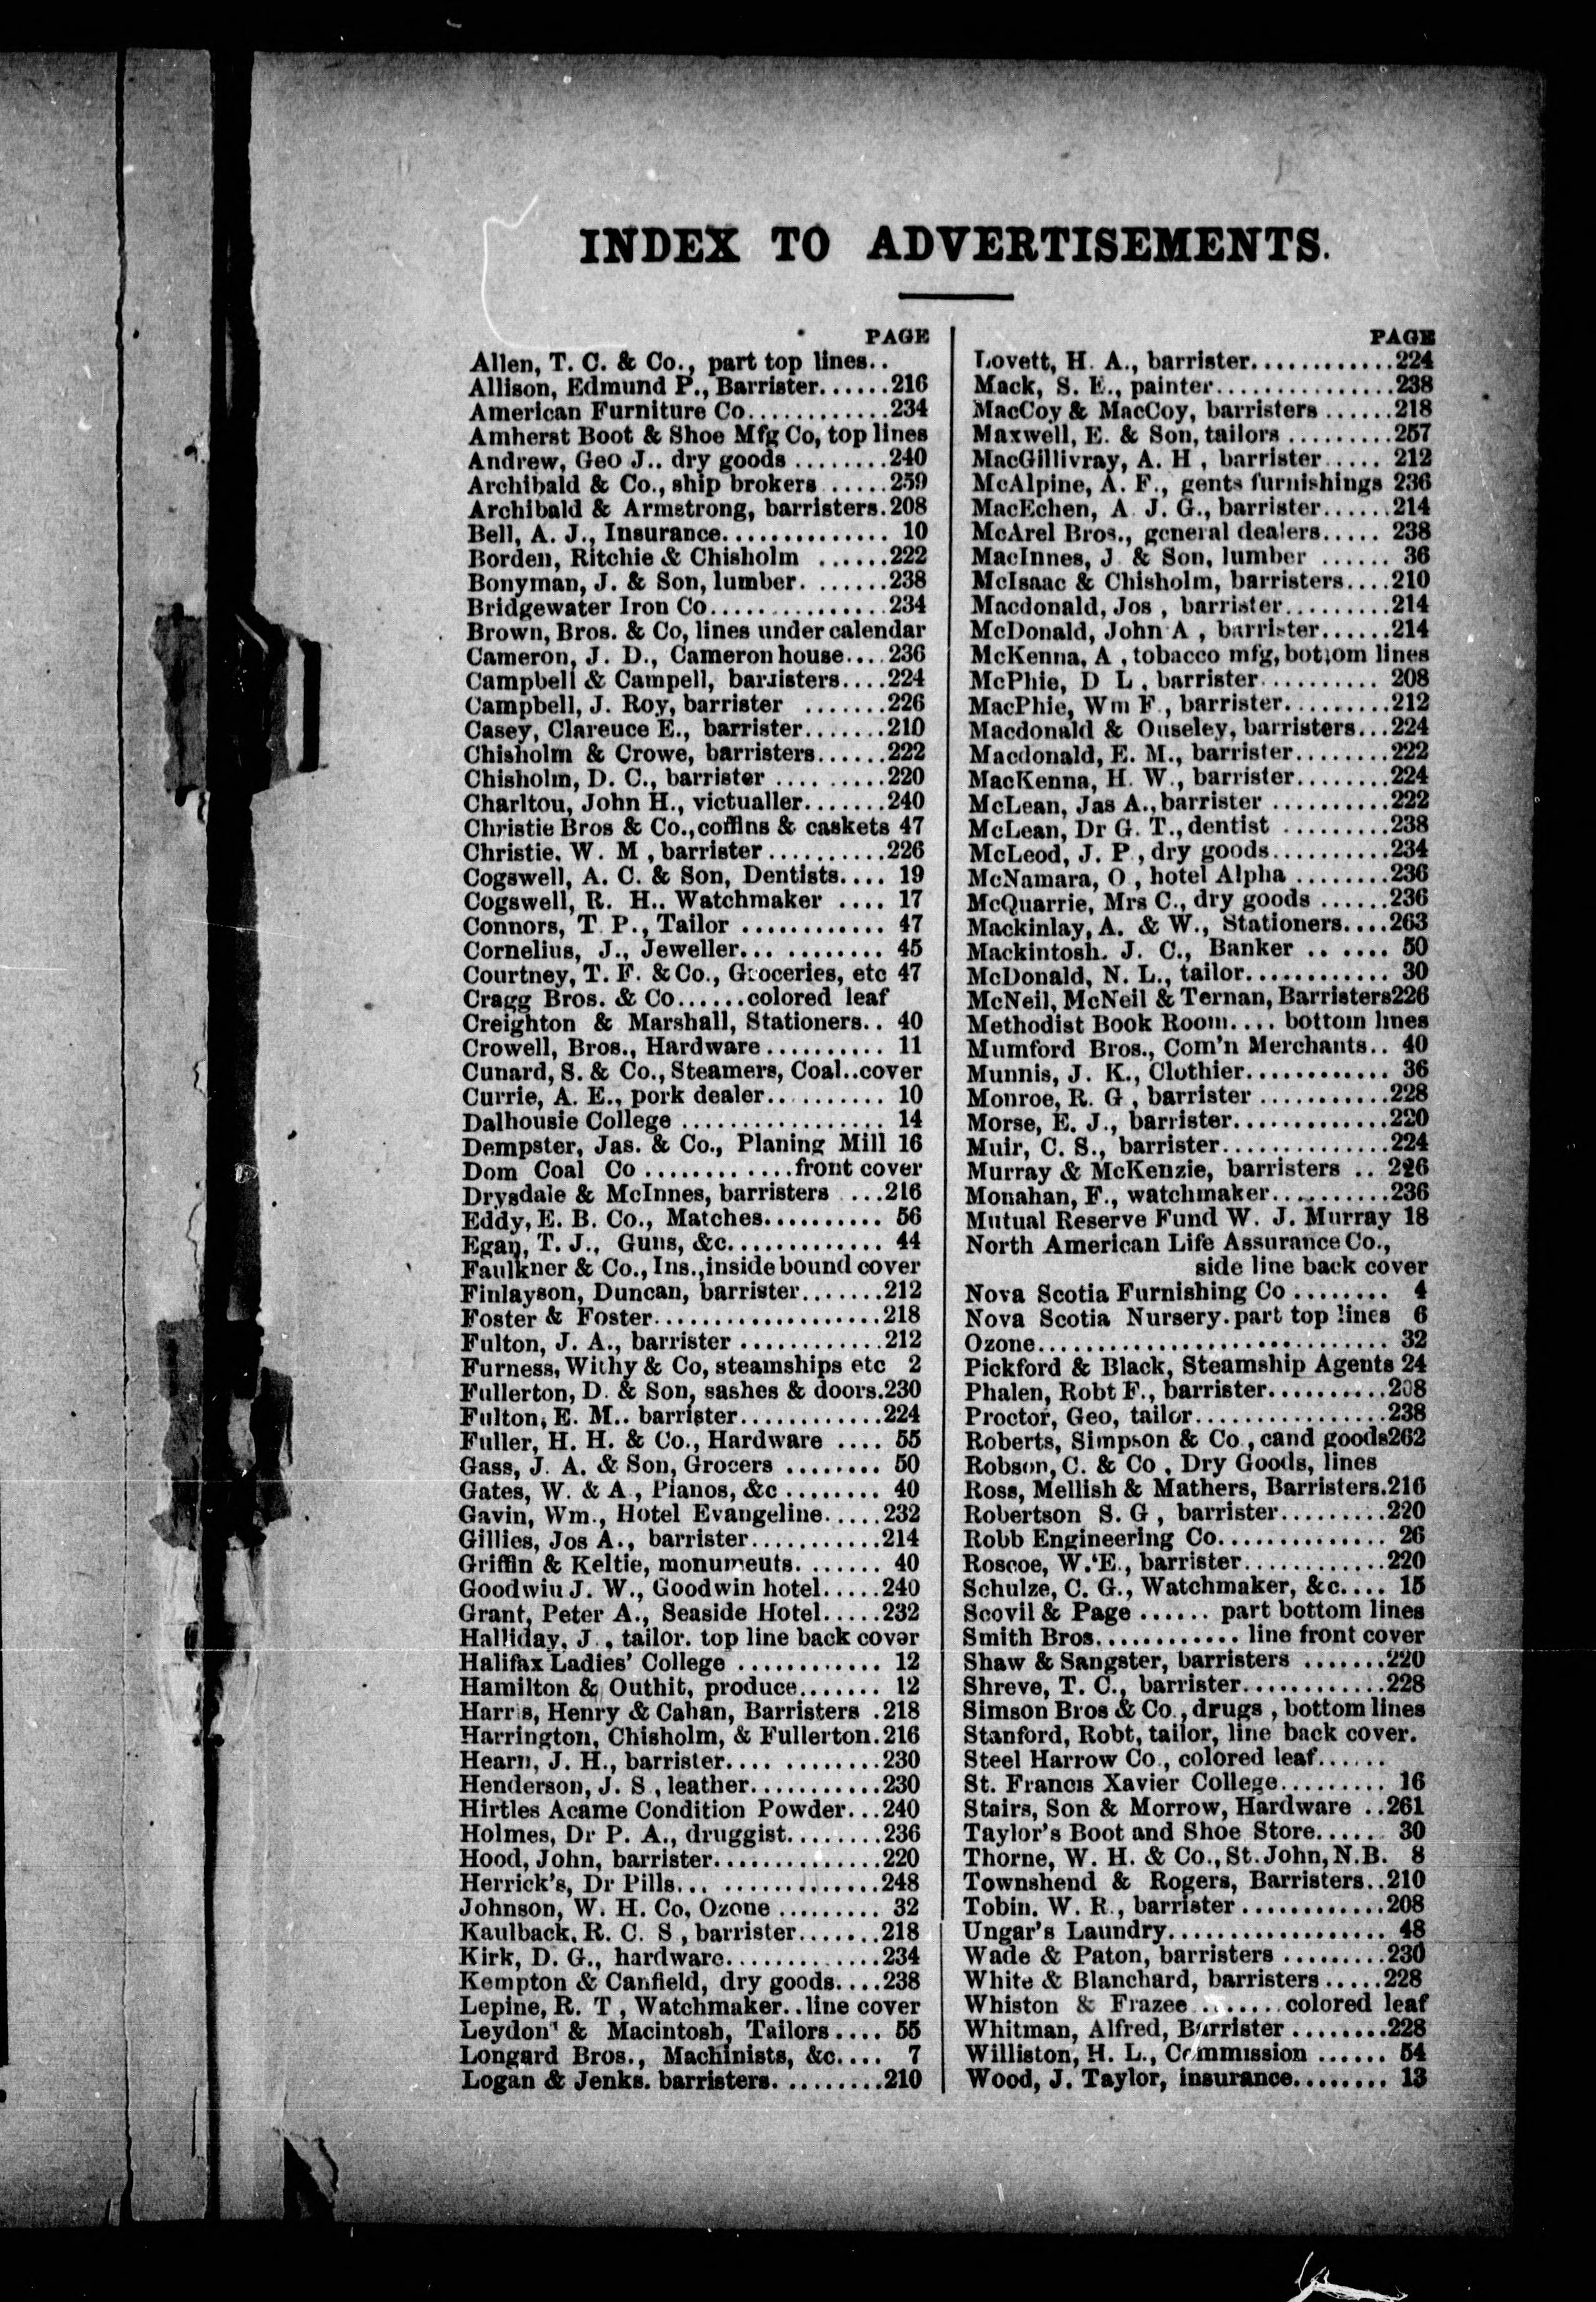 INDEX TO ADVERTISEMENTS.
PAGE
Allen, T. C. & Co., part top lines..
Allison, Edmund P., Barrister......216
American Furniture Co............234
Amherst Boot & Shoe Mfg Co, top lines
Andrew, Geo J.. dry goods ........240
Archibald & Co., ship brokers ......259
Archibald & Armstrong, barristers.208
Bell, A. J., Insurance.............. 10
Borden, Ritchie & Chisholm ......222
Bonyman, J. & Son, lumber. .......238
Bridgewater Iron Co...............234
Brown, Bros. & Co, lines under calendar
Cameron, J. D., Cameron house....236
Campbell & Campell, barristers....224
Campbell, J. Roy, barrister .......226
Casey, Clareuce E., barrister.......210
Chisholm & Crowe, barristers......222
Chisholm, D. C., barrister ..........220
Charltou, John H., victualler.......240
Christie Bros & Co., coffins & caskets 47
Christie. W. M , barrister..........226
Cogswell, A. C. & Son, Dentists.... 19
Cogswell, R. H.. Watchmaker .... 17
Connors, T. P., Tailor ............ 47
Cornelius, J., Jeweller... ......... 45
Courtney, T. F. & Co., Groceries, etc 47
Cragg Bros. & Co......colored leaf
Creighton & Marshall, Stationers.. 40
Crowell, Bros., Hardware.......... 11
Cunard, S. & Co., Steamers, Coal..cover
Currie, A. E., pork dealer.......... 10
Dalhousie College ................. 14
Dempster, Jas. & Co., Planing Mill 16
Dom Coal Co.............front cover
Drysdale & McInnes, barristers ...216
Eddy, E. B. Co., Matches.......... 56
Egan, T. J., Guns, &c............. 44
Faulkner & Co., Ins., inside bound cover
Finlayson, Duncan, barrister.......212
Foster & Foster...................218
Fulton, J. A., barrister ............212
Furness, Withy & Co, steamships etc 2
Fullerton, D. & Son, sashes & doors.230
Fulton, E. M.. barrister............224
Fuller, H. H. & Co., Hardware .... 55
Gass, J. A. & Son, Grocers ........ 50
Gates, W. & A., Pianos, &c ........ 40
Gavin, Wm., Hotel Evangeline.....232
Gillies, Jos A., barrister...........214
Griffin & Keltie, monumeuts. ....... 40
Goodwiu J. W., Goodwin hotel.....240
Grant, Peter A., Seaside Hotel.....232
Halliday, J., tailor. top line back cover
Halifax Ladies' College ............ 12
Hamilton & Outhit, produce....... 12
Harris, Henry & Cahan, Barristers .218
Harrington, Chisholm, & Fullerton.216
Hearn, J. H., barrister.... .........230
Henderson, J. S , leather...........230
Hirtles Acame Condition Powder...240
Holmes, Dr P. A., druggist........236
Hood, John, barrister..............220
Herrick's, Dr Pills... .............248
Johnson, W. H. Co, Ozone ......... 32
Kaulback, R. C. S , barrister.......218
Kirk, D. G., hardware.............234
Kempton & Canfield, dry goods....238
Lepine, R. T , Watchmaker..line cover
Leydon & Macintosh, Tailors.... 55
Longard Bros., Machinists, &c.... 7
Logan & Jenks. barristers. .........210
PAGE
Lovett, H. A., barrister............224
Mack, S. E., painter................238
MacCoy & MacCoy, barristers ......218
Maxwell, E. & Son, tailors .........257
MacGillivray, A. H , barrister..... 212
McAlpine, A. F., gents furnishings 236
MacEchen, A. J. G., barrister......214
McArel Bros., general dealers..... 238
MacInnes, J. & Son, lumber ...... 36
McIsaac & Chisholm, barristers....210
Macdonald, Jos , barrister.........214
McDonald, John A , barrister......214
McKenna, A , tobacco mfg, bottom lines
McPhie, D L , barrister.......... 208
MacPhie, Wm F., barrister.........212
Macdonald & Ouseley, barristers...224
Macdonald, E. M., barrister........222
MacKenna, H. W., barrister........224
McLean, Jas A., barrister ..........222
McLean, Dr G. T., dentist .........238
McLeod, J. P , dry goods..........234
McNamara, O , hotel Alpha ........236
McQuarrie, Mrs C., dry goods ......236
Mackinlay, A. & W., Stationers....263
Mackintosh. J. C., Banker ...... 50
McDonald, N. L., tailor............ 30
McNeil, McNeil & Ternan, Barristers226
Methodist Book Room.... bottom lines
Mumford Bros., Com'n Merchants.. 40
Munnis, J. K., Clothier............ 36
Monroe, R. G , barrister ...........228
Morse, E. J., barrister.............220
Muir, C. S., barrister..............224
Murray & McKenzie, barristers .. 226
Monahan, F., watchmaker..........236
Mutual Reserve Fund W. J. Murray 18
North American Life Assurance Co.,
side line back cover
Nova Scotia Furnishing Co ........ 4
Nova Scotia Nursery. part top lines 6
Ozone.............................. 32
Pickford & Black, Steamship Agents 24
Phalen, Robt F., barrister..........208
Proctor, Geo, tailor................238
Roberts, Simpson & Co., cand goods262
Robson, C. & Co , Dry Goods, lines
Ross, Mellish & Mathers, Barristers.216
Robertson S. G , barrister.........220
Robb Engineering Co.............. 26
Roscoe, W. E., barrister............220
Schulze, C. G., Watchmaker, &c.... 15
Scovil & Page ...... part bottom lines
Smith Bros............ line front cover
Shaw & Sangster, barristers .......220
Shreve, T. C., barrister............228
Simson Bros & Co., drugs , bottom lines
Stanford, Robt, tailor, line back cover.
Steel Harrow Co., colored leaf......
St. Francis Xavier College......... 16
Stairs, Son & Morrow, Hardware ..261
Taylor's Boot and Shoe Store...... 30
Thorne, W. H. & Co., St. John, N.B. 8
Townshend & Rogers, Barristers..210
Tobin. W. R., barrister ............208
Ungar's Laundry................... 48
Wade & Paton, barristers .........230
White & Blanchard, barristers.....228
Whiston & Frazee ........colored leaf
Whitman, Alfred, Barrister ........228
Williston, H. L., Commission ...... 54
Wood, J. Taylor, insurance........ 13